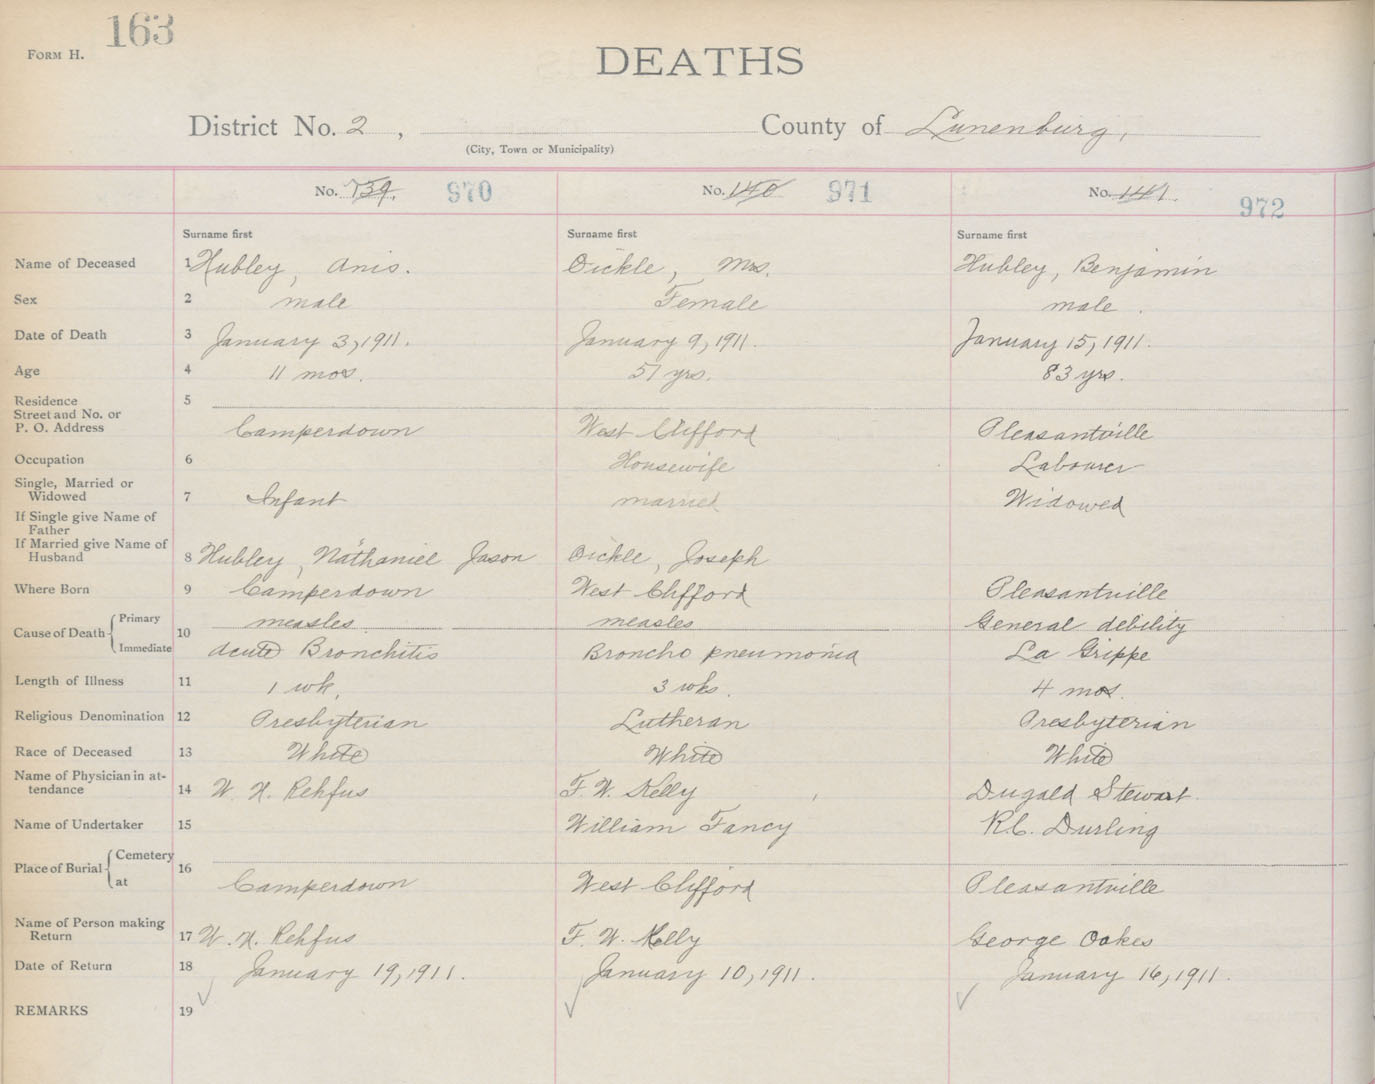 163
FORM H.
DEATHS
District No. 2 , County of Lunenburg,
(City, Town or Municipality)
No. 739. 970 No. 140 971 No. 141. 972
Surname first Surname first Surname first
Name of Deceased 1 Hubley, Anis. Dickle, Mrs. Hubley, Benjamin
Sex 2 male Female male.
Date of Death 3 January 3, 1911. January 9, 1911. January 15, 1911.
Age 4 11 mos. 57 yrs. 83 yrs.
Residence 5
Street and No. or
P. O. Address Camperdown West Clifford Pleasantville
Occupation 6 Housewife Labourer
Single, Married or
Widowed 7 Infant married Widowed
If Single give Name of
Father
If Married give Name of
Husband 8 Hubley, Nathaniel Jason Dickle, Joseph
Where Born 9 Camperdown West Clifford Pleasantville
Cause of Death 10 Primary measles measles General debility
Immediate acute Bronchitis Broncho pneumonia La Grippe
Length of Illness 11 1 wk. 3 wks. 4 mos.
Religious Denomination 12 Presbyterian Lutheran Presbyterian
Race of Deceased 13 White White White
Name of Physician in at-
tendance 14 W. H. Rehfus F. W. Kelly Dugald Stewart.
Name of Undertaker 15 William Fancy R.C. Durling
Place of Burial 16 Cemetery
at Camperdown West Clifford Pleasantville
Name of Person making
Return 17 W. H. Rehfus F. W. Kelly George Oakes
Date of Return 18 January 19, 1911. January 10, 1911. January 16, 1911.
REMARKS 19